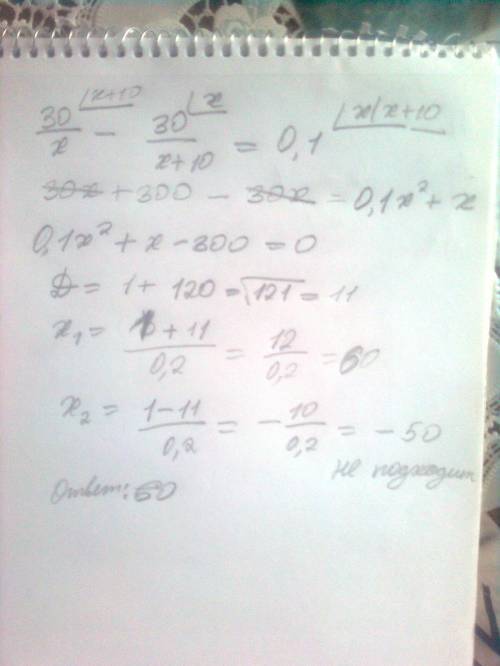 30/x ⌊x+10 − 30/(x+10) ⌊x = 0,1 ⌊x(x+10
30x + 300 − 30x = 0,1x² + x
0,1x² + x − 300 = 0
D = 1 + 120 = √121 = 11
x₁ = (1 + 11)/0,2 = 12/0,2 = 60
x₂ = (1−11)/0,2 = −10/0,2 = −50
не подходит
Ответ: 60